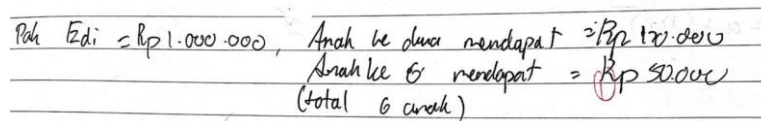 Pak Edi = Rp 1.000.000, Anak ke dua mendapat = Rp 120.000
Anak ke 6 mendapat = Rp 50.000
(total 6 anak)